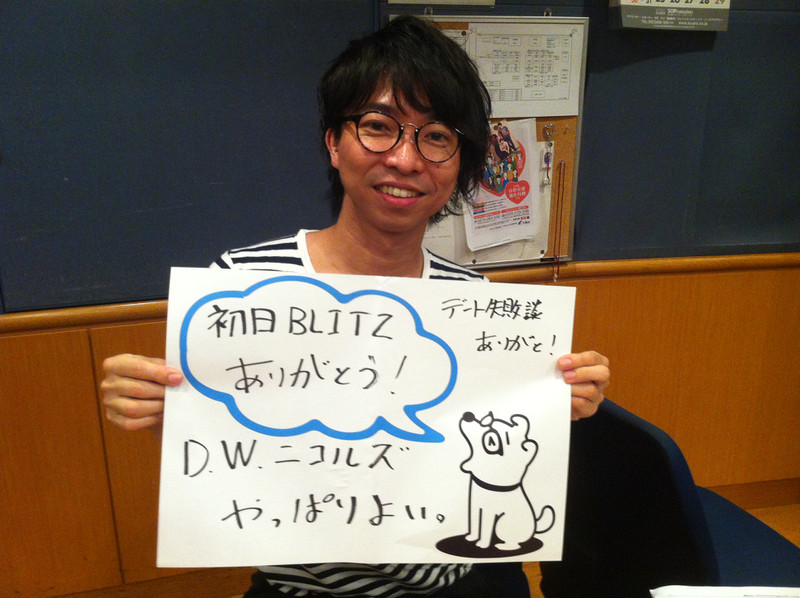 初日BLITZ
ありがとう!
デート失敗談
ありがと!
D.W.ニコルズ
やっぱりよい。